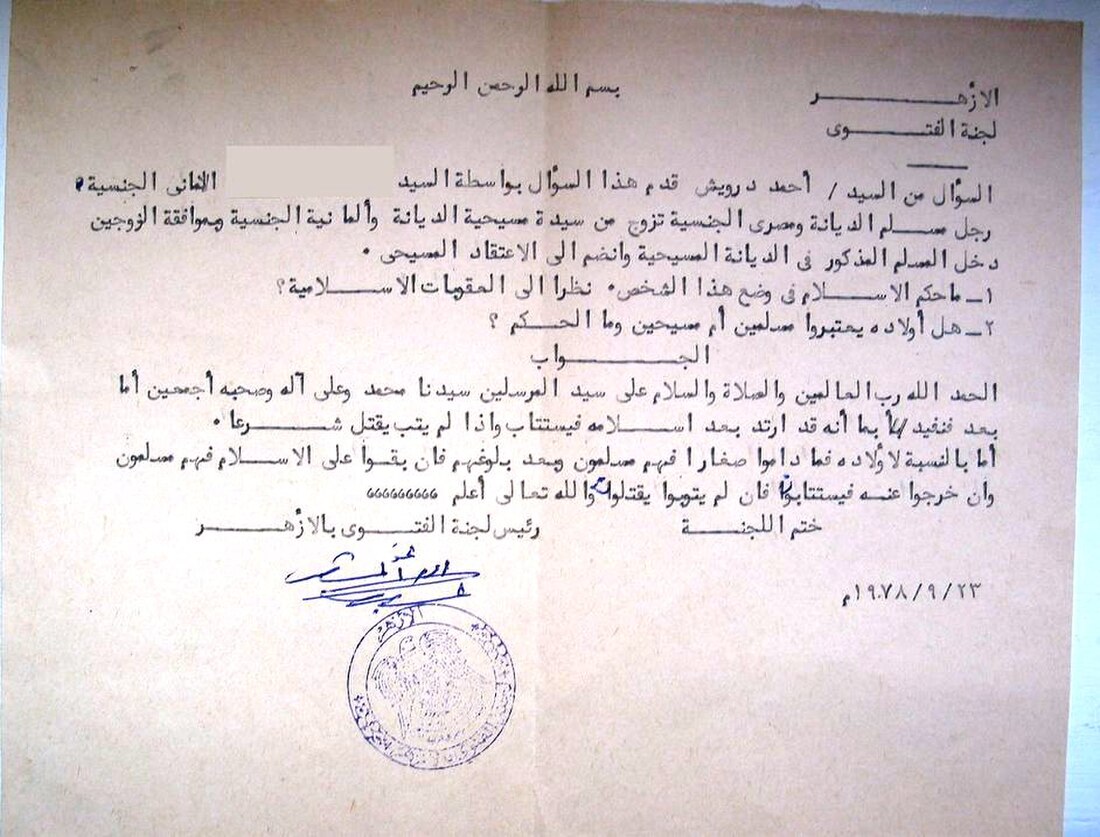 الأزهر
بسم الله الرحمن الرحيم
لجنة الفتوى
السؤال من السيد / أحمد درويش قدم هذا السؤال بواسطة السيد الألمانى الجنسية
رجل مسلم الديانة ومصرى الجنسية تزوج من سيدة مسيحية الديانة وألمانية الجنسية وبموافقة الزوجين
دخل المسلم المذكور فى الديانة المسيحية وانضم الى الاعتقاد المسيحى ٠
١ـ ماحكم الاسلام فى وضع هذا الشخص٠ نظرا الى العقوبات الاسلامية؟
٢ـ هل أولاده يعتبروا مسلمين أم مسيحين وما الحكم ؟
الجواب
الحمد الله رب العالمين والصلاة والسلام على سيد المرسلين سيدنا محمد وعلى آله وصحبه أجمعين أما
بعد فنفيد بأنه قد ارتد بعد اسلامه فيستتاب واذا لم يتب يقتل شرعا٠
أما بالنسبة لاؤلاده فما داموا صغارا فهم مسلمون وبعد بلوغهم فان بقوا على الاسلام فهم مسلمون
وان خرجوا عنه فيستتابوا فان لم يتوبوا يقتلوا والله تعالى أعلم
ختم اللجنة
رئيس لجنة الفتوى بالازهر
٢٣ / ٩ / ١٩٧٨م
الأزهر